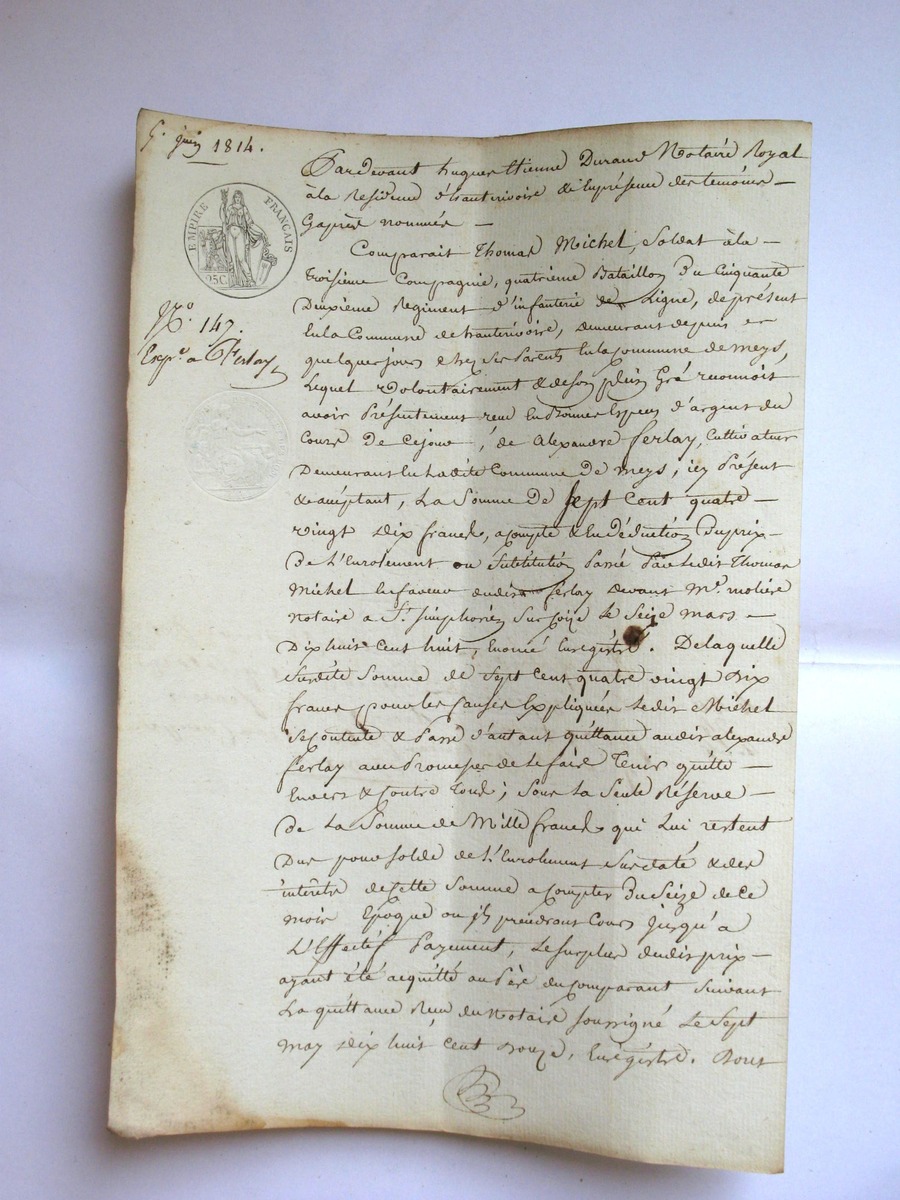 juin 1814.
EMPIRE FRANÇAIS
25 C
N.º 147.
Exp.e a Ferlay
Pardevant hugues Etienne Durand Notaire Royal
à la Residence d'hauterivoire & En présence des temoins
Cy après nommés
Comparait Thomas Michel, Soldat à la
troisieme Compagnie, quatrieme Bataillon Du Cinquante
Deuxieme Regiment d'infanterie de Ligne, de présent
En la Commune de hauterivoire, demeurant depuis
quelques jours chez ses Parents En la Commune de meys,
Lequel volontairement & de son plein Gré reconnoit
avoir Présentement reçu En Bonnes Especes d'argent du
Cours De Ce jour, de Alexandre ferlay, Cultivateur
Demeurant En Ladite Commune De meys, icy Présent
& acceptant, La Somme De Sept Cent quatre
vingt dix francs, acompte & En Déduction Du prix
De L'Enrolement ou Substitution Passé Par Ledit Thomas
Michel En faveur dudit ferlay devant Me. molière
notaire a St. simphorien Sur Coize le Seize mars
Dix huit Cent huit, Enoncé Enrégistré. De laquelle
Susdite Somme de Sept Cent quatre vingt dix
francs pour les Causes Expliquées Ledit Michel
Se Contente & Passe d'autant quittance audit alexandre
ferlay avec Promesse de Le faire Tenir quitte
Envers & Contre Tous; Sous La Seule Réserve
De La Somme de Mille francs qui Lui restent
Dus pour solde de L'Enrolement Susdaté & des
intérêts de Cette Somme a Compter Du Seize de Ce
mois Epoque ou ils prendront Cours jusqu'a
L'Effectif Payement, Le Surplus dudit prix
ayant été acquitté au Père du Comparant Suivant
La quittance Reçue du Notaire soussigné Le Sept
may dix huit Cent Douze, Enrégistré. Dont